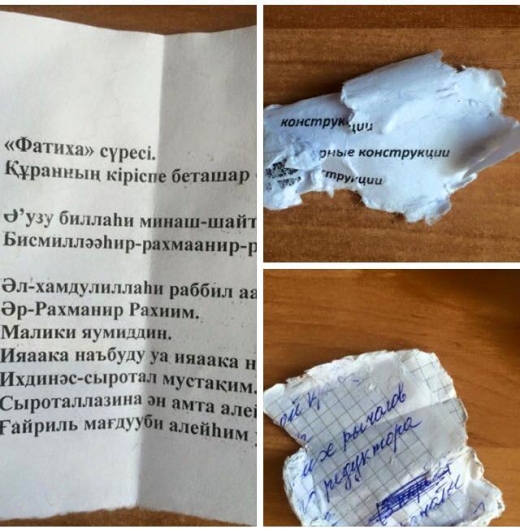 «Фатиха» сүресі.
Құранның кіріспе беташар
Ә’узу биллаһи минаш-шайт
Бисмилләәһир-рахмаанир-р
Әл-хамдулиллаһи раббил аа
Әр-Рахманир Рахиим.
Малики яумиддин.
Ияаака наъбуду уа ияаака н
Ихдинәс-сыротал мустаким.
Сыроталлазина ән амта алей
Ғайриль мағдууби алейһим
конструкции
рные конструкции
трукции
рычагов
редуктора